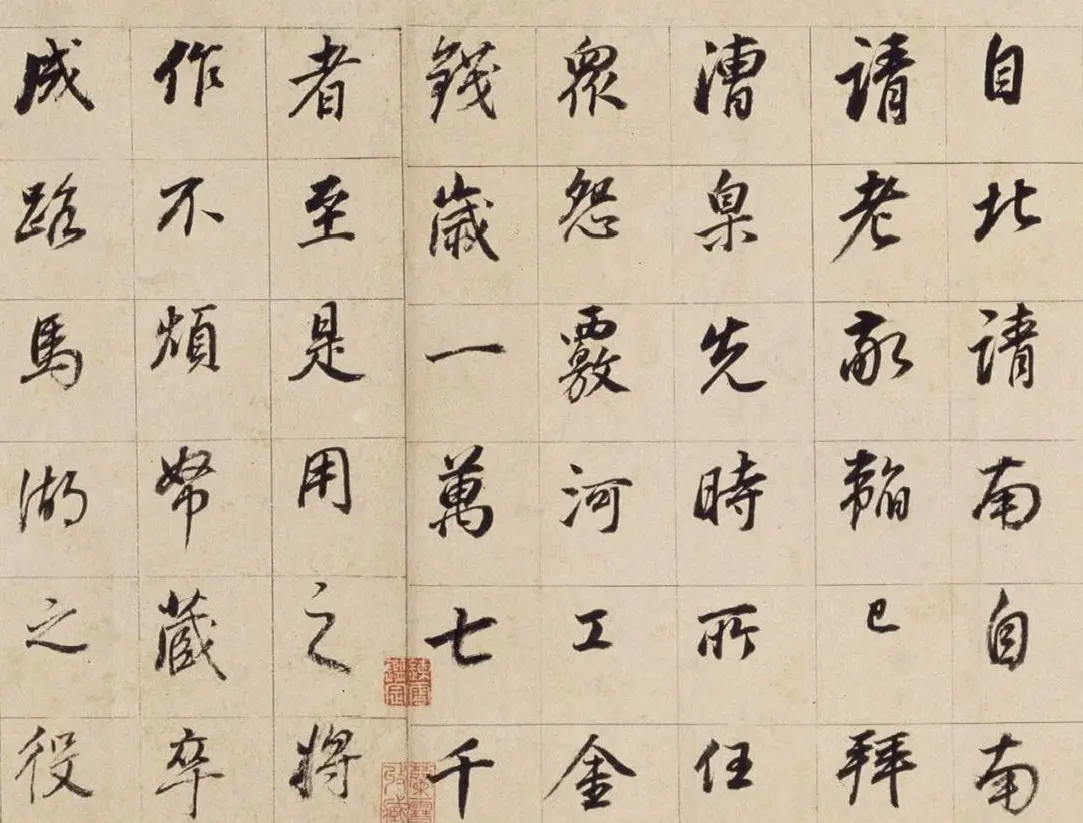 自北請南自南
請老已拜
漕臬先時所任
眾怨覈河工金
錢歲一萬七千
者至是用之將
作不煩帑藏卒
成路馬湖之役